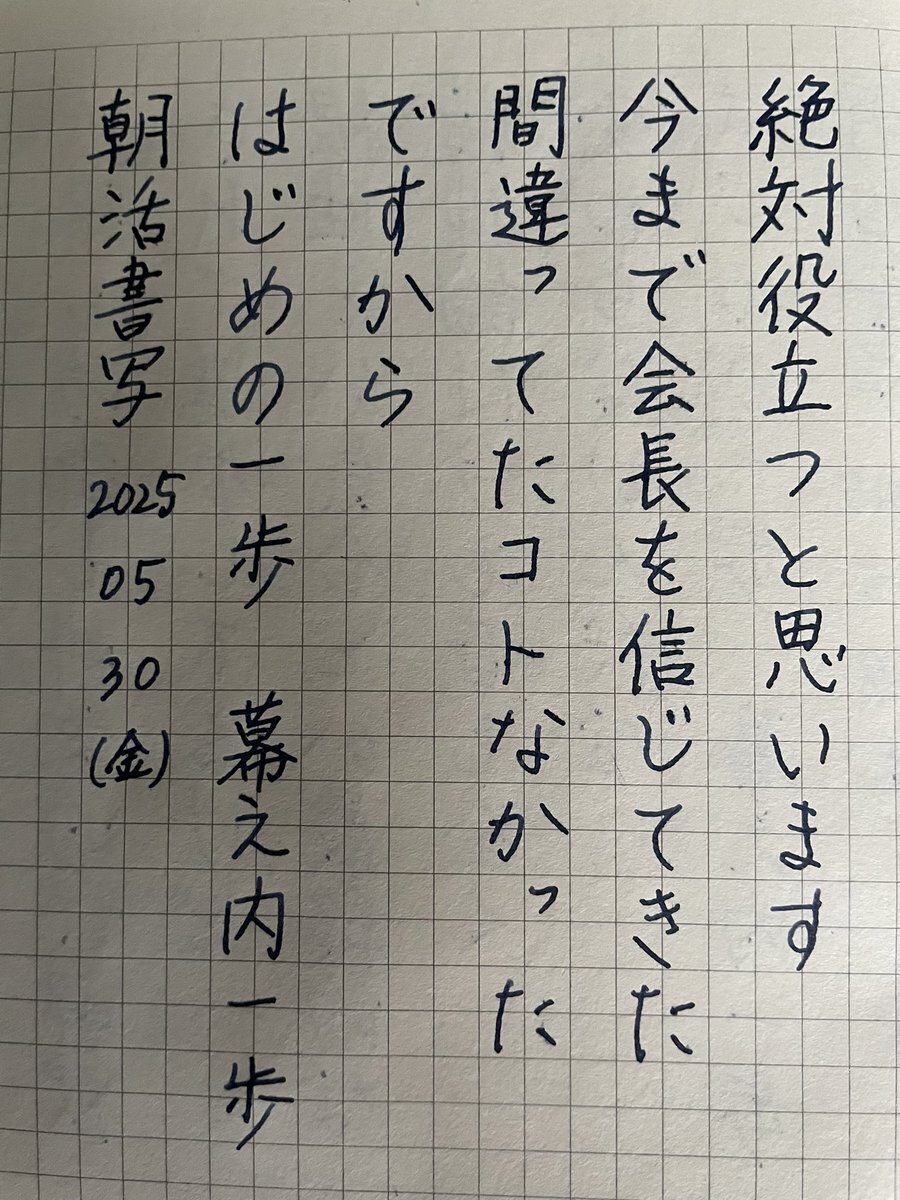 絶対役立つと思います
今まで会長を信じてきた
間違ってたコトなかった
ですから
はじめの一歩 幕え内一歩
朝活書写 2025 05 30 (金)